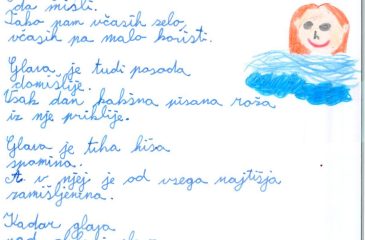 da misli.
Tako nam včasih zelo,
včasih pa malo koristi.
Glava je tudi posoda
domišlije.
Vsak dan kakšna pisana roža
iz nje priklije.
Glava je tiha hiša
spomina.
A v njej je od vsega najtišja
zamišljenina.
Kadar glava
nad